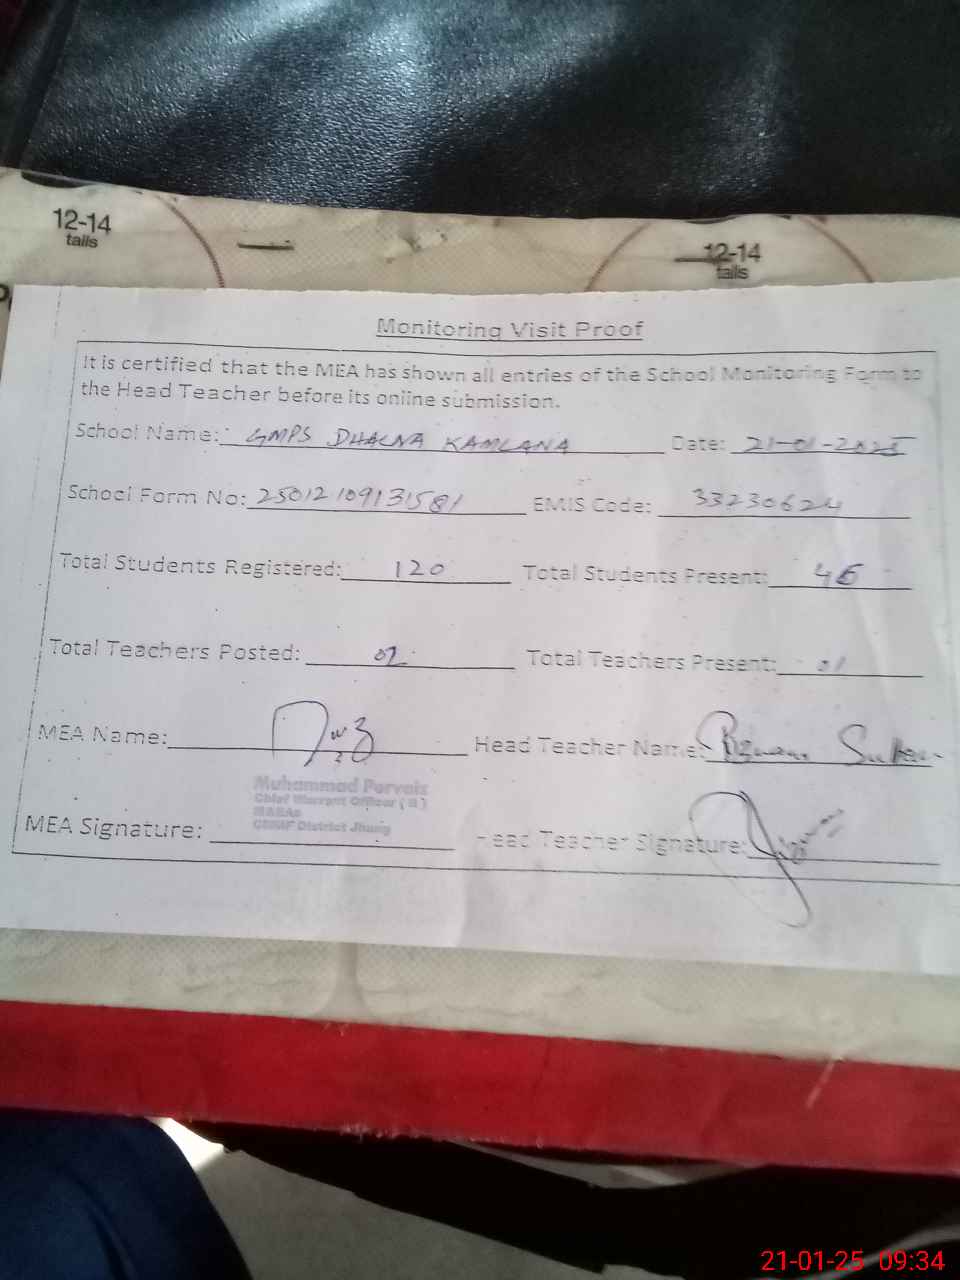 12-14
tails
12-14
tails
Monitoring Visit Proof
It is certified that the MEA has shown all entries of the School Monitoring Form to
the Head Teacher before its online submission.
School Name: GMPS DHALNA KAMLANA Date: 21-01-2025
School Form No: 25012109131581 EMIS Code: 33230624
Total Students Registered: 120 Total Students Present:
Total Teachers Posted: 02 Total Teachers Present: 01
MEA Name: Head Teacher Name:
Muhammad Pervaiz
Chief Warrant Officer ( R )
MEA Signature: Head Teacher Signature:
District Jhang
21-01-25 09:34